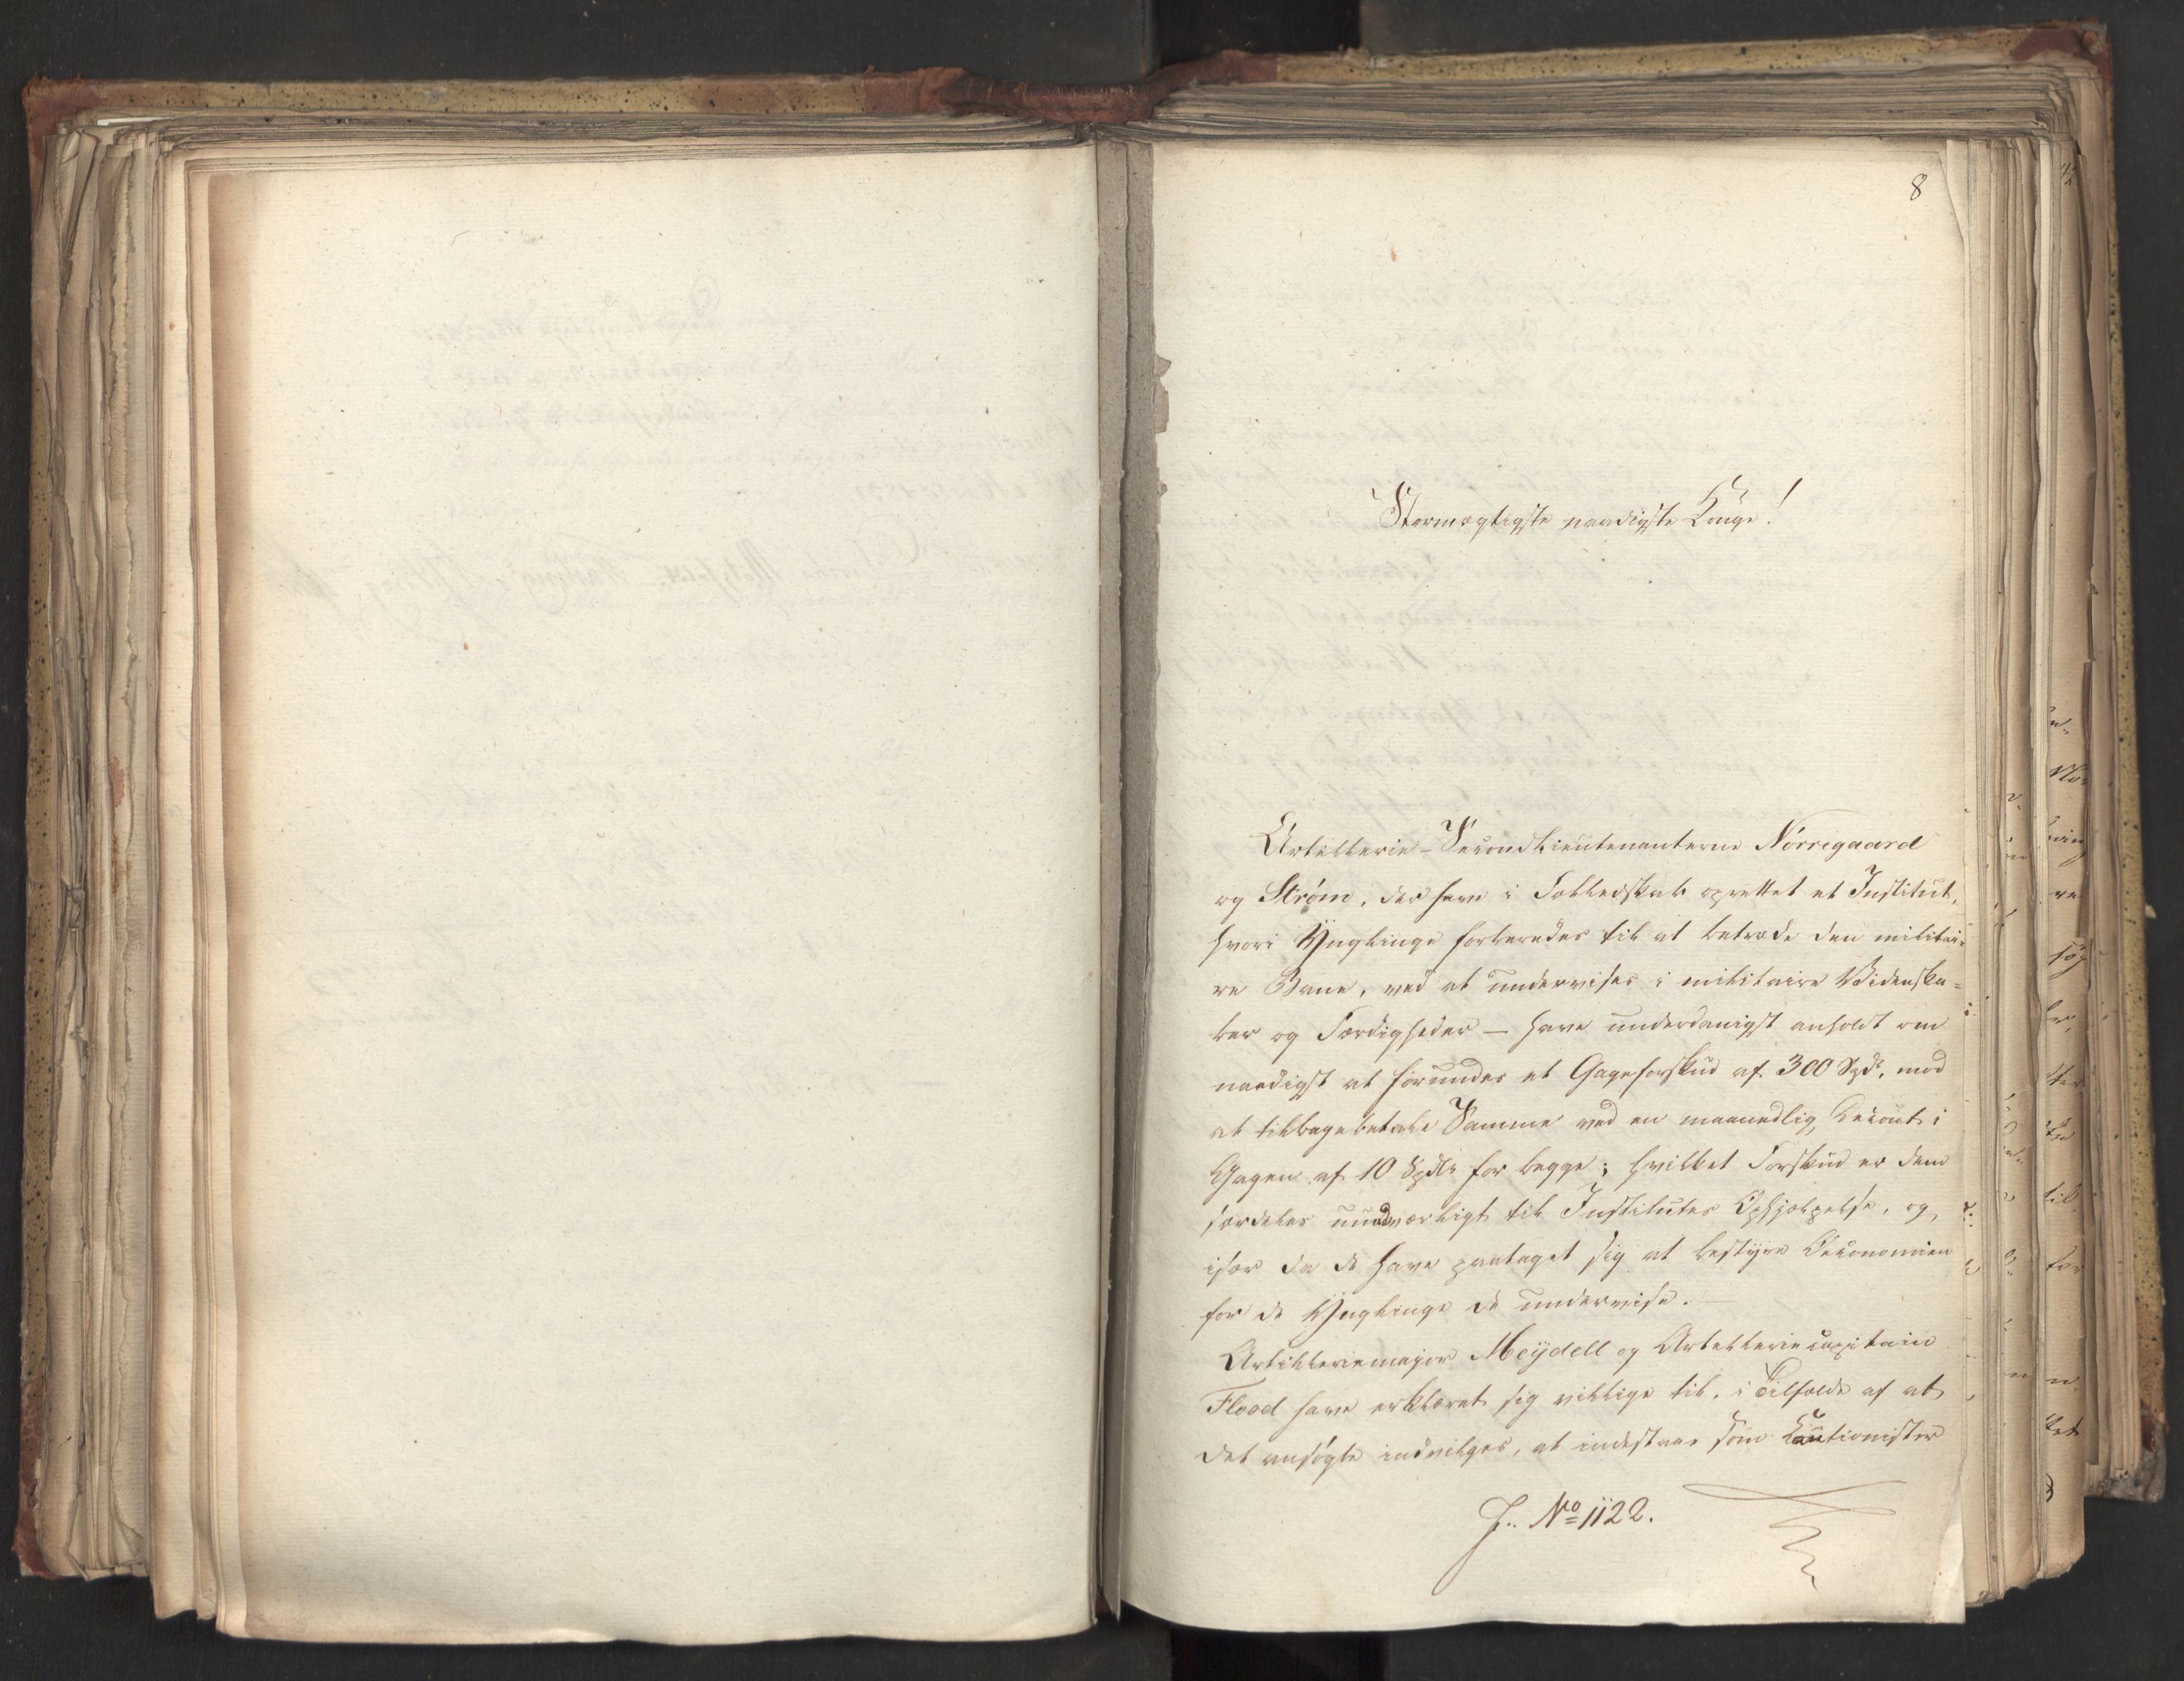 8
Stormægtigste naadigste Konge!
Artillerie-Secondlieutenanterne Nørregaard
og Strøm, der have i Fælledskab oprettet et Institut,
hvori Ynglinge forberedes til at betræde den militai-
re Bane, ved at undervises i militaire Videnska-
ber og Færdigheder — have underdanigst anholdt om
naadigst at forundes et Gageforskud af 300 Spd, mod
at tilbagebetale Samme ved en maanedlig Decourt i
Gagen af 10 Spdlr for begge; hvilket Forskud er dem
særdeles uundværligt til Institutes Ophjælpelse, og
især da de have paataget sig at bestyre Oeconomien
for de Ynglinge de undervise. —
Artilleriemajor Meÿdell og Artilleriecapitain
Flood have erklæret sig villige til, i Tilfælde af at
det ansøgte indvilges, at indestaae som Cautionister
J.. No 1122.